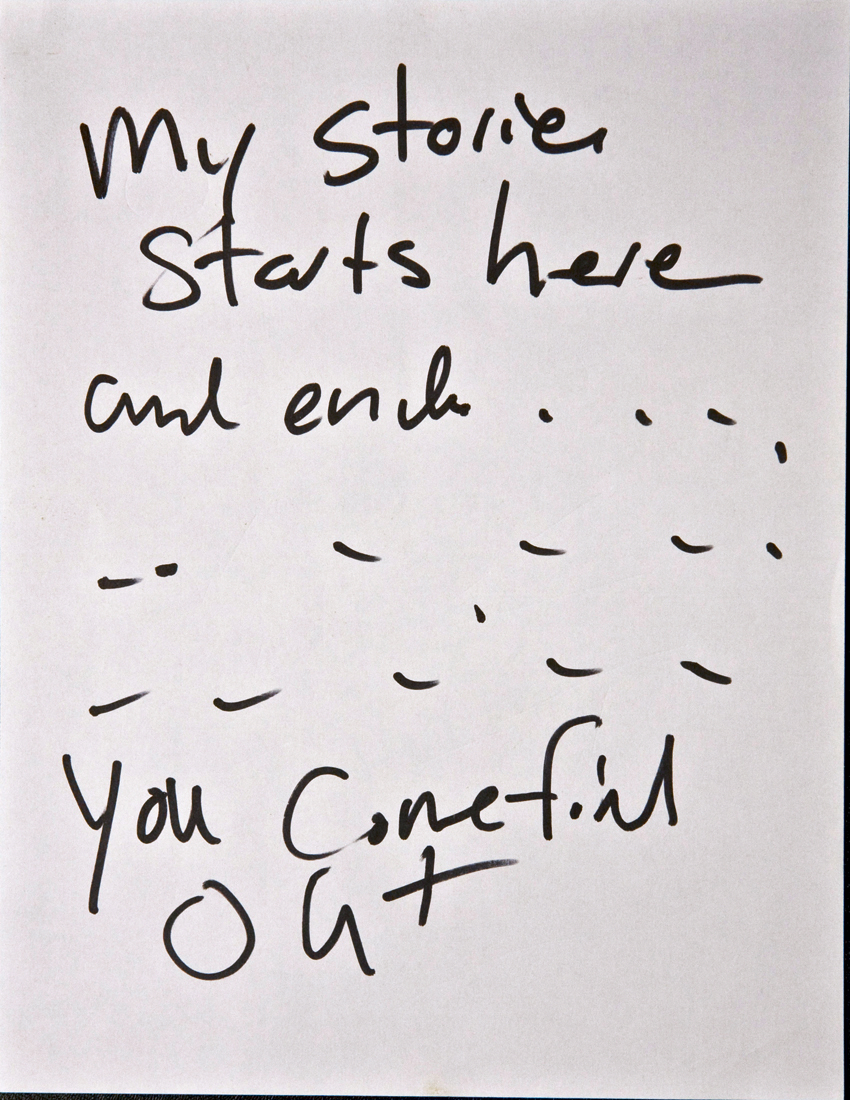 My stories
starts here
and ends . . . .
-- - - - .
- - - - -
You come find
out